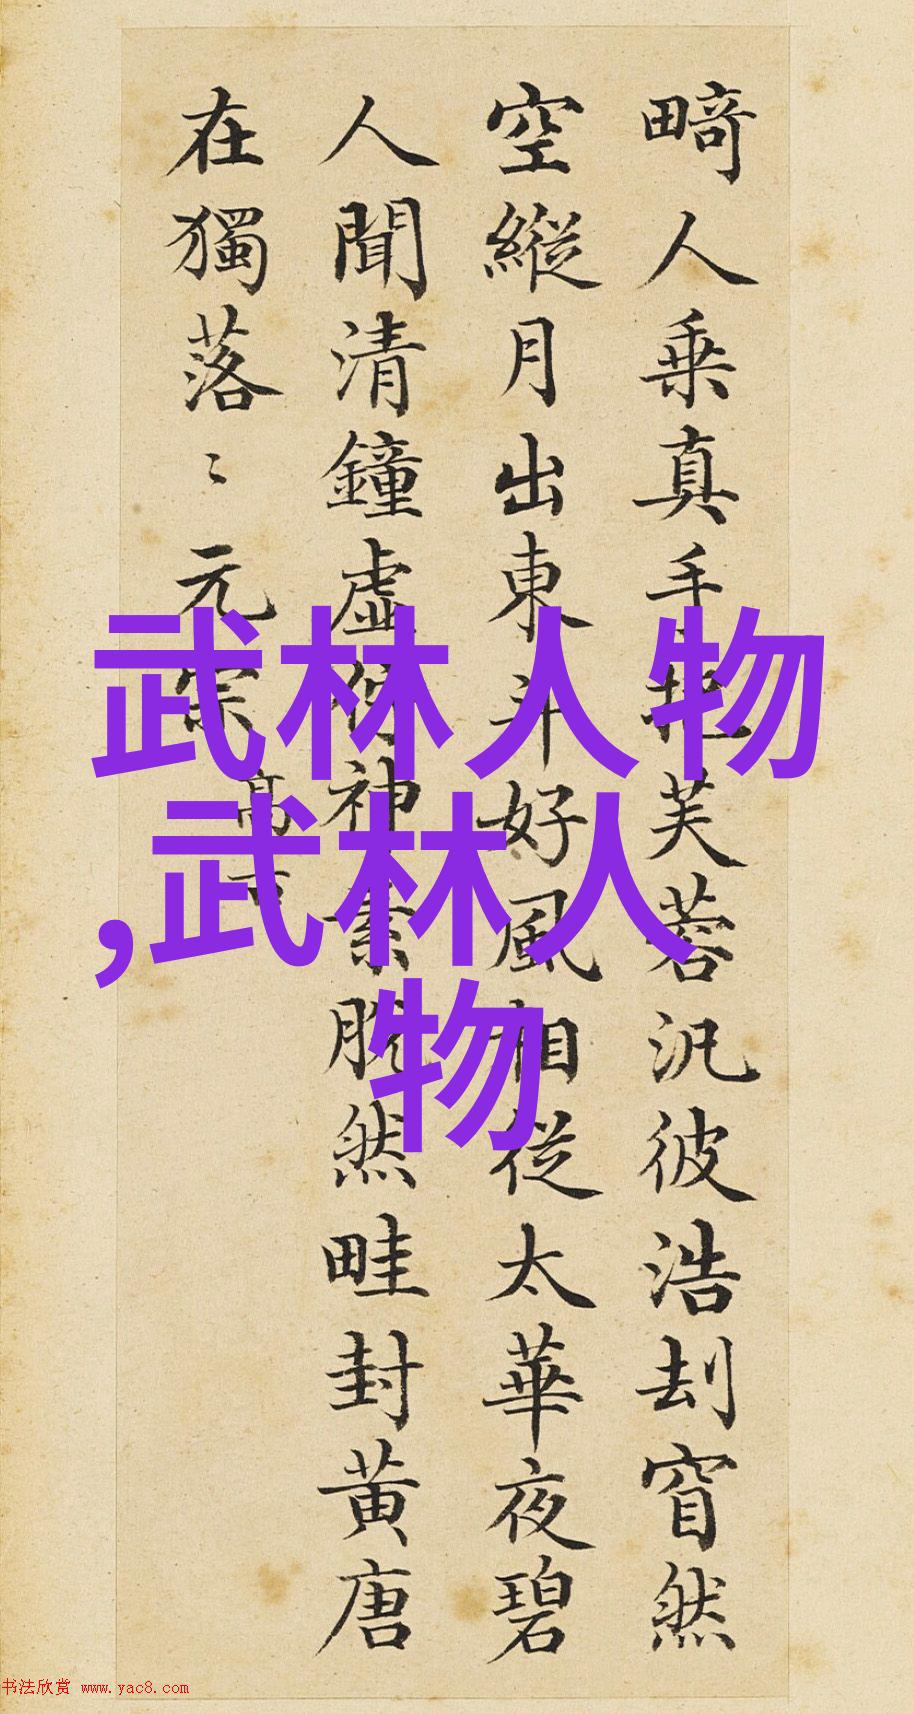 畸人乗真手把芙蓉汎彼浩刦窅然
空縱月出東斗好風相從太華夜碧
人聞清鐘虛佇神素脱然畦封黄唐
在獨落〻元宗
高
武林人物
,武林人
物
书法欣赏 www.yac8.com